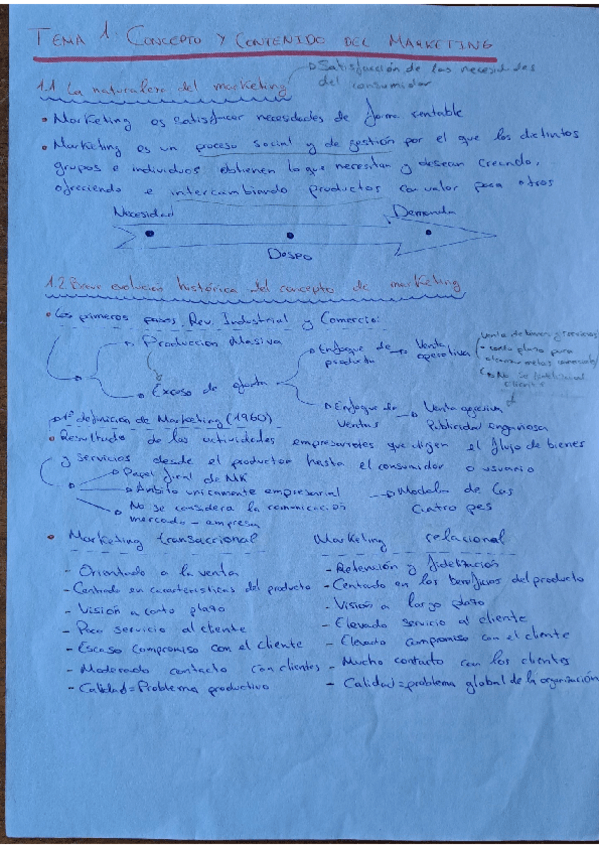 TEMA 1: CONCEPTO Y CONTENIDO DEL MARKETING
1.1 La naturaleza del marketing → Satisfacción de las necesidades
del consumidor
• Marketing es satisfacer necesidades de forma rentable
• Marketing es un proceso social y de gestión por el que los distintos
grupos e individuos obtienen lo que necesitan y desean creando,
ofreciendo e intercambiando productos con valor para otros
Necesidad
Demanda
Deseo
1.2 Breve evolución histórica del concepto de marketing
• Los primeros pasos, Rev. Industrial y Comercio:
Producción Masiva
Exceso de oferta
Enfoque de → Venta
producto operativa
venta de bienes y servicios
- corto plazo para
cliente
Enfoque de → Venta agresiva
Ventas Publicidad engañosa
1ª definición de Marketing (1960)
• Resultado de las actividades empresariales que dirigen el flujo de bienes
y servicios desde el productor hasta el consumidor o usuario
→ Papel final de MK
→ Ámbito unicamente empresarial → Modelo de las
Cuatro pes
→ No se considera la comunicación
mercado - empresa
• Marketing transaccional Marketing relacional
- Orientado a la venta - Retención y fidelización
- Centrado en características del producto - Centrado en los beneficios del producto
- Visión a corto plazo - Visión a largo plazo
- Poco servicio al cliente - Elevado servicio al cliente
- Escaso Compromiso con el cliente - Elevado compromiso con el cliente
- Moderado contacto con clientes - Mucho contacto con los clientes
- Calidad = Problema productivo - Calidad = problema global de la organización